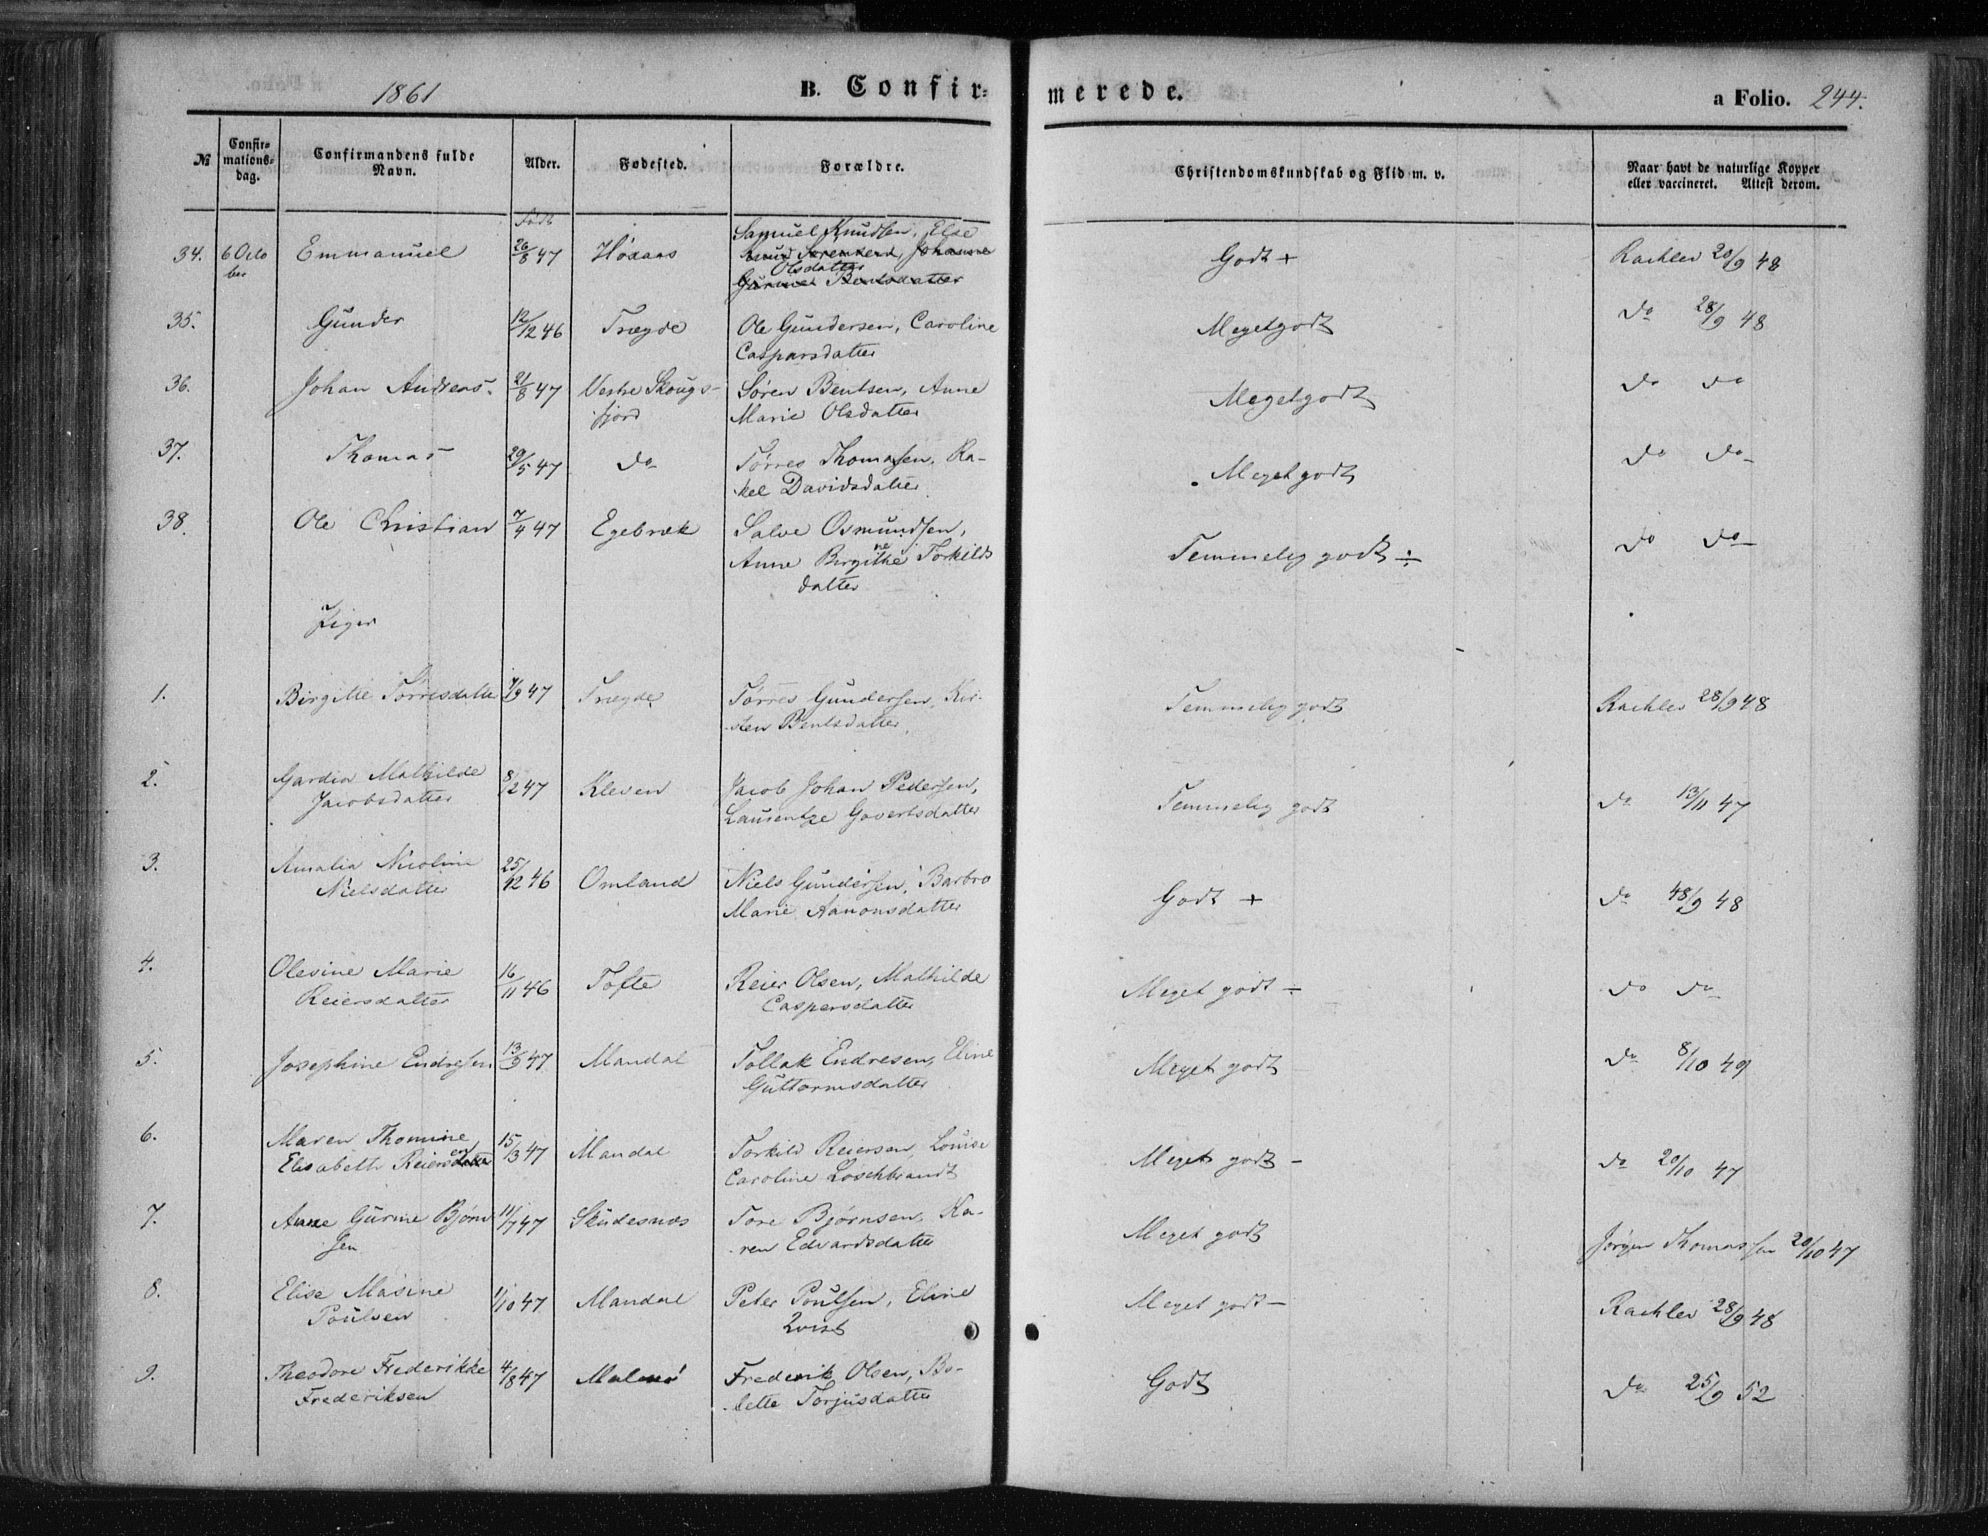 1861 B. Confir= merede. a Folio. 244.
№ Confir=mations=dag. Confirmandens fulde Navn. Alder. Fødested. Forældre. Christendomskundskab og Flid m. v. Naar havt de naturlige Kopper eller vaccineret. Attest derom.
Født
Samuel Knudsen, Else
34. 6 Octo Emmanuel 26/8 47 Knud Johanne Godt + 20/9 48
ber Olsdatter
Gurine Bentsdatter
35. Gunder 12/12 46 Trægde Ole Gundersen, Caroline Megetgodt do 28/9 48
Casparsdatter
36. Johan Andreas 21/8 47 Vestre Skougs- Søren Bentsen, Anne Megetgodt do do
fjord Marie Olsdatter
37. Thomas 29/5 47 do Tørres Thomassen, Ra- Meget godt do do
kel Davidsdatter
38. Ole Christian 7/4 47 Egebræk Salve Osmundsen, Temmelig godt ÷ do do
Anne Birgithe Torkilds
datter
Piger
1. Birgitte Tørresdatter 7/9 47 Trægde Tørres Gundersen, Kir- Temmelig godt 28/9 48
sten Bentsdatter
2. Mathilde 8/2 47 Kleven Jacob Johan Pedersen, Temmelig godt do 13/11 47
Jacobsdatter Govertsdatter
3. Amalia Nicoline 25/12 46 Omland Niels Gundersen, Barbro Godt + do 48/9 48
Nielsdatter Marie Aanonsdatter
4. Olesine Marie 16/11 46 Tofte Reier Olsen, Mathilde Meget godt - do do
Reiersdatter Caspersdatter
5. Josephine Endresen 13/5 47 Mandal Tollak Endresen, Eline Meget godt do 8/10 49
Guttormsdatter
6. Maren Thomine 15/3 47 Mandal Torkild Reiersen, Louise Meget godt - do 20/10 47
Elisabeth Reiersen Caroline Loschbrandt
7. Anne Gurine Bjørn 11/7 47 Skudesnæs Tore Bjørnsen, Ka- Meget godt Jørgen Thomassen 20/10 47
sen ren Edvardsdatter
8. Elise Masine 1/10 47 Mandal Peter Poulsen, Eline Meget godt - 28/9 48
Poulsen Qvist
9. Theodore Frederikke 4/8 47 Malmø Frederik Olsen, Bo- Godt do 25/9 52
Frederiksen lette Torjusdatter